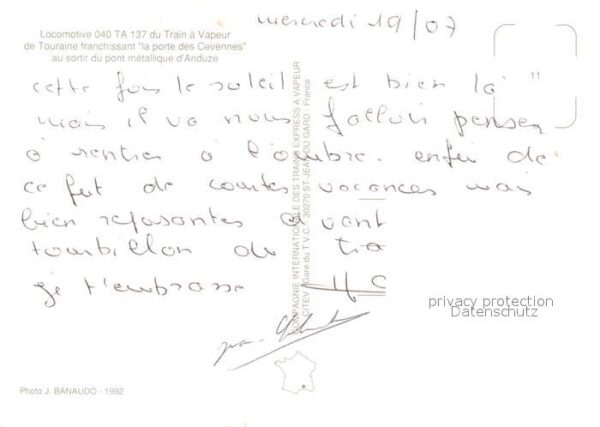 mercredi 19/07
Locomotive 040 TA 137 du Train à Vapeur
de Touraine franchissant "la porte des Cevennes"
au sortir du pont métallique d'Anduze
cette fois le soleil est bien là "
mais il va nous falloir penser
à rentrer à l'ombre. enfin de
ce fut de courtes vacances mais
bien reposantes avant
tourbillon du tra
je t'embrasse
COMPAGNIE INTERNATIONALE DES TRAINS EXPRESS A VAPEUR
CITEV - Gare du T.V.C. - 30270 ST-JEAN-DU-GARD - France
privacy protection
Datenschutz
Photo J. BANAUDO - 1992